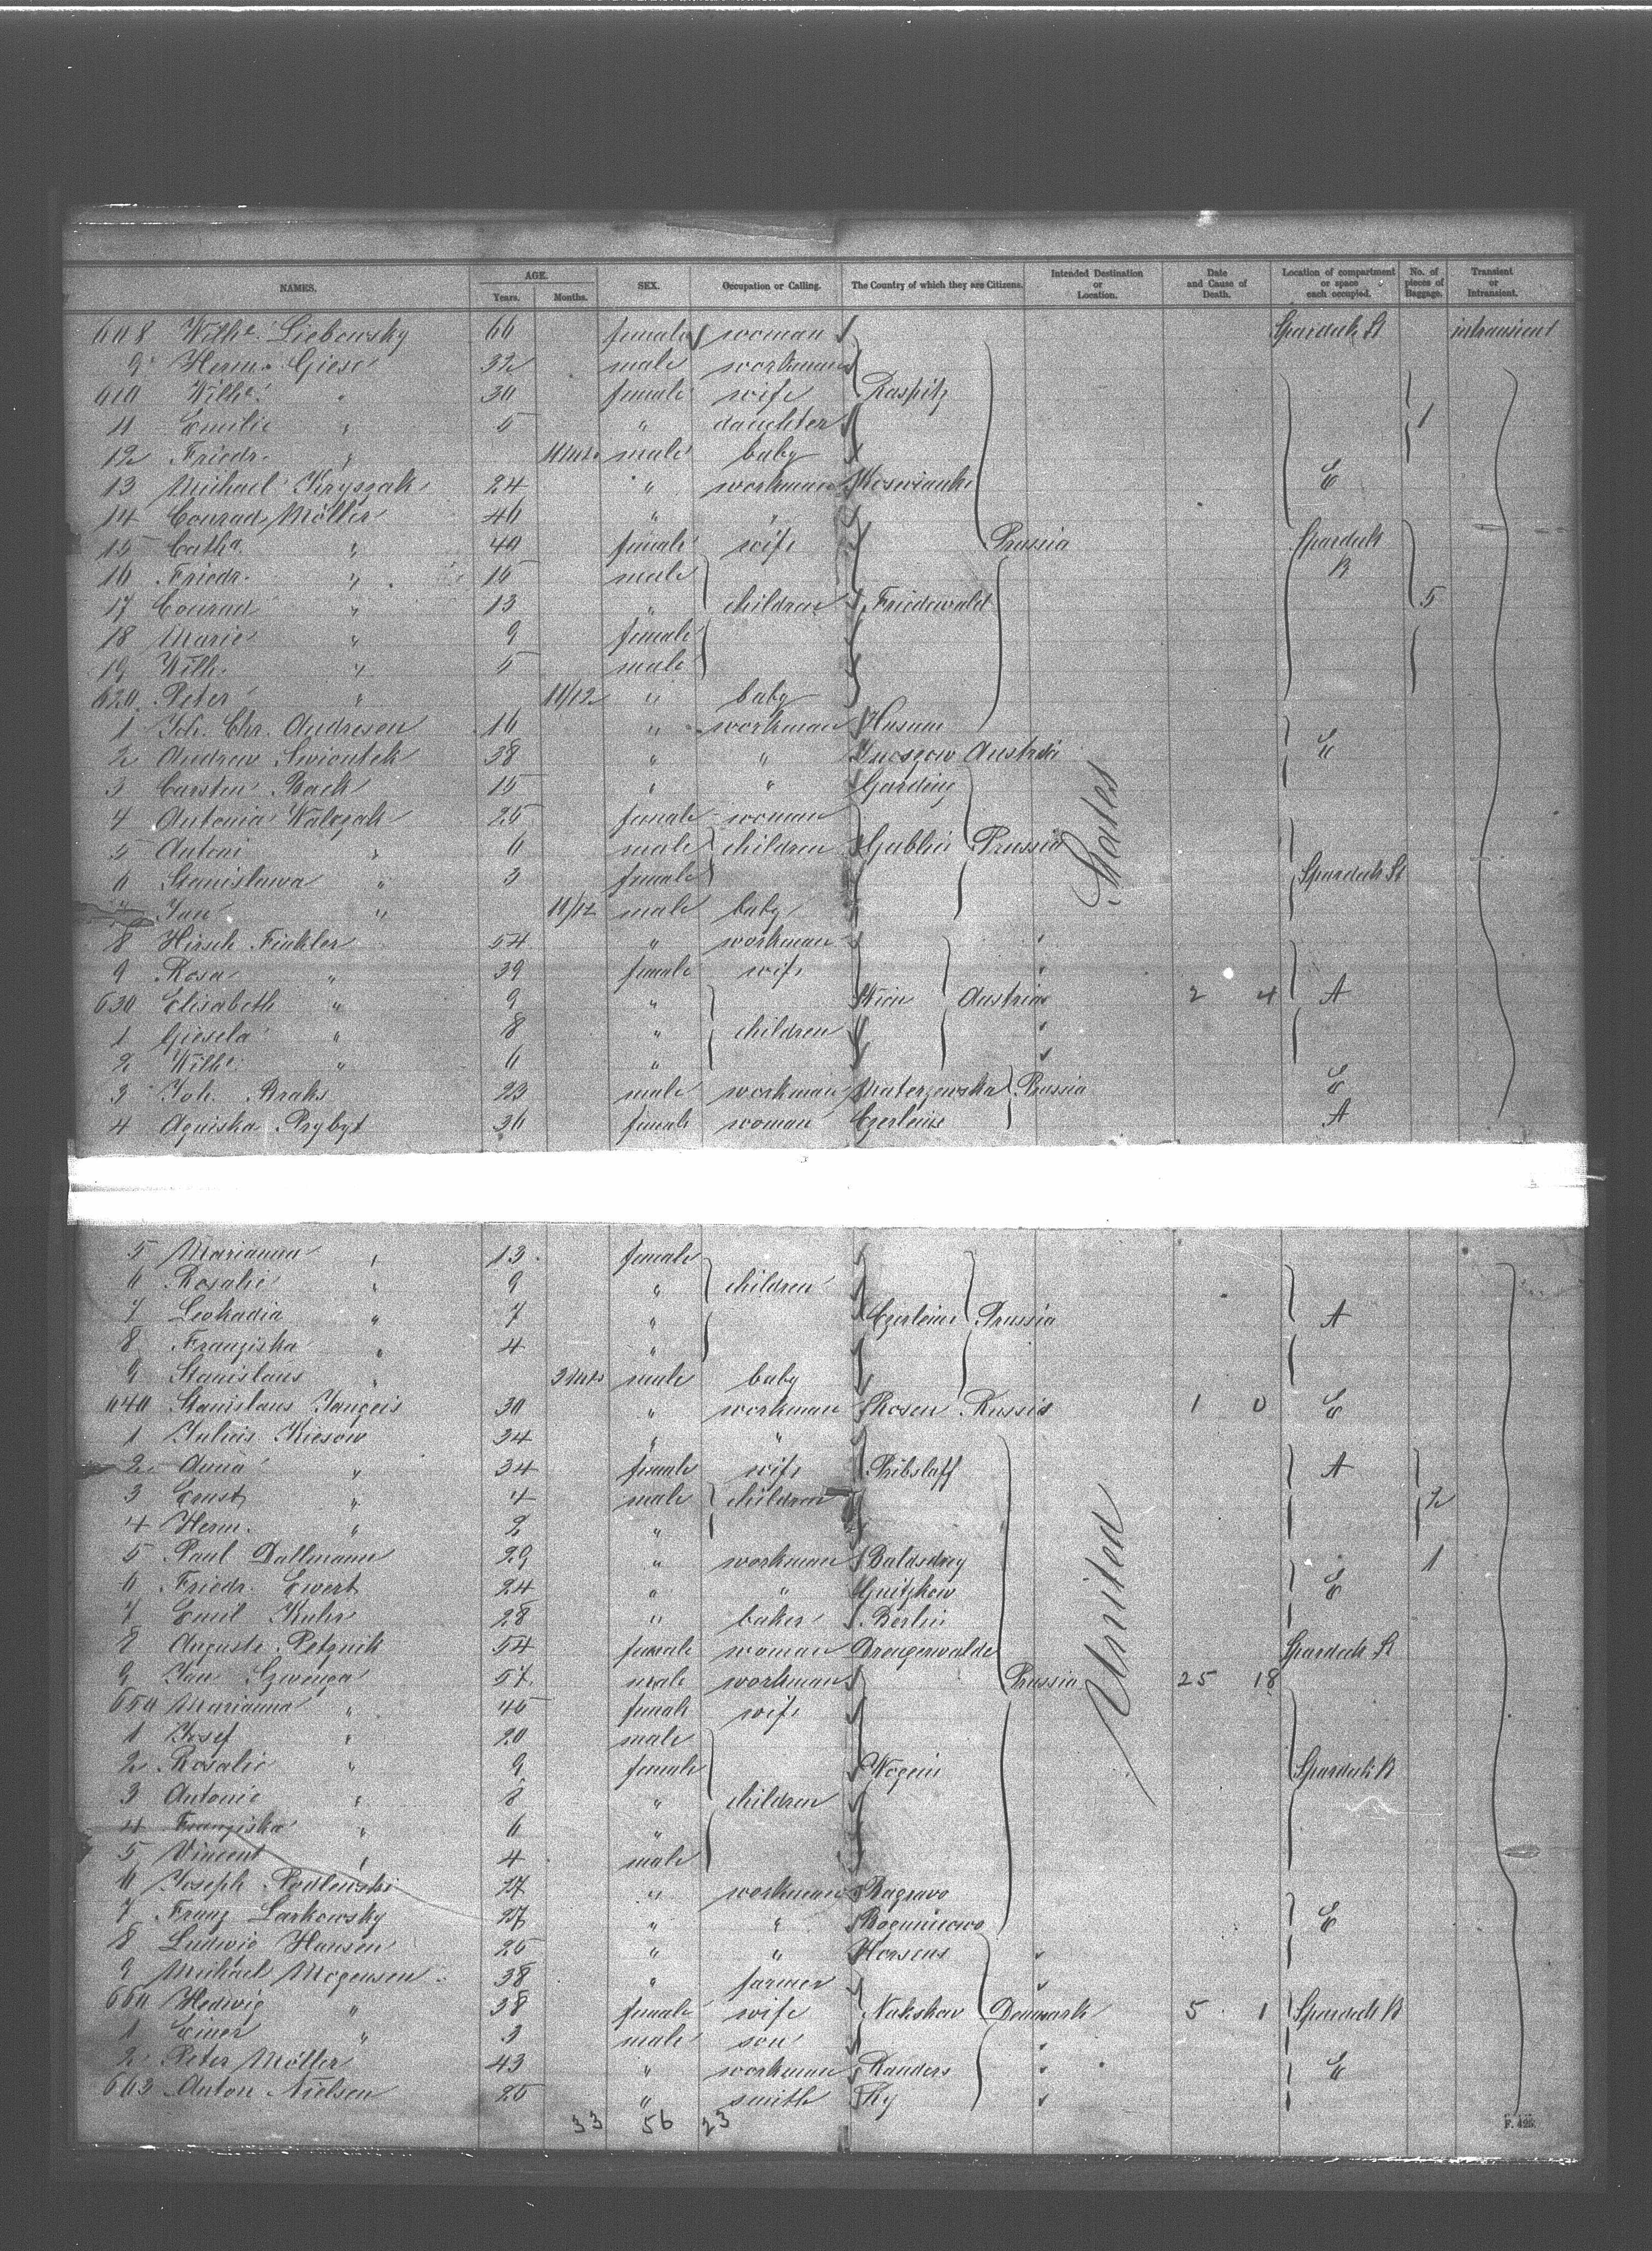 NAMES. AGE. Years. Months. SEX. Occupation or Calling. The Country of which they are Citizens. Intended Destination or Location. Date and Cause of Death. Location of compartment or space each occupied. No. of pieces of Baggage. Transient or Intransient.
608 Wilhe. Liebowsky 66 female woman Spardeck St intransient
9 Herm. Giese 32 male workman
610 Wilhe. " 30 female wife Raspitz
11 Emilie " 5 " daughter 1
12 Friedr. " male baby
13 Michael Kryszak 24 " workman E
14 Conrad Möller 46 " "
15 Catha. " 40 female wife Prussia Spardeck
16 Friedr. " 15 male B
17 Conrad " 13 " children Friedewald 5
18 Marie " 9 female
19 Wilh. " 5 male
620 Peter " 11/12 " baby
1 Joh. Chr. Andresen 16 " workman Husum
2 Andrew Swiontek 38 " " Austria E
3 Carsten Back 15 " " Garding
4 Antonia Walczak 25 female woman States
5 Antoni " 6 male children Gublin Prussia
6 Stanislawa " 3 female Spardeck St
7 Jan " 11/12 male baby
8 Hirsch Fichler 54 " workman
9 Rosa " 39 female wife
630 Elisabeth " 9 " Wien Austria 2 4 A
1 Giesela " 8 " children
2 Wilhe. " 6 "
3 Joh. Braks 23 male workman Materzewska Prussia E
4 Agniska Prybyt 36 female woman Czerleine A
5 Marianna " 13 female
6 Rosalie " 9 " children
7 Leokadia " 7 " Czerleine Prussia A
8 Franziska " 4 "
9 Stanislaus " male baby
640 Stanislaus Jangeis 30 " workman Rosen Russia 1 0 E
1 Julius Kiesow 34 " "
2 Anna " 34 female wife Ribslaff A
3 Ernst " 4 male children 2
4 Herm. " 2 "
5 Paul Dallmann 29 " workman 1
6 Friedr. Ewert 24 " " Guitzkow E
7 Emil Kuhr 28 " baker Berlin United
8 Auguste Petznik 54 female woman Drengerwalde Spardeck St
9 Jan Szwenga 57 male workman Prussia 25 18
650 Marianna " 45 female wife
1 Josef " 20 male
2 Rosalie " 9 female Wogein Spardeck B
3 Antonie " 8 " children
4 Franziska " 6 "
5 Vincent " 4 male
6 Joseph Podlewski 27 " workman Ragrawo
7 Franz Larkowsky 27 " " Boguniewo E
8 Ludwig Hansen 25 " " Horsens
9 Michael Mogensen 38 " farmer
660 Hedwig " 38 female wife Nakskow Denmark 5 1 Spardeck B
1 Einer " 3 male son
2 Peter Möller 43 " workman Randers E
663 Anton Nielsen 25 " smith Ry
33 56 23
F. 425.